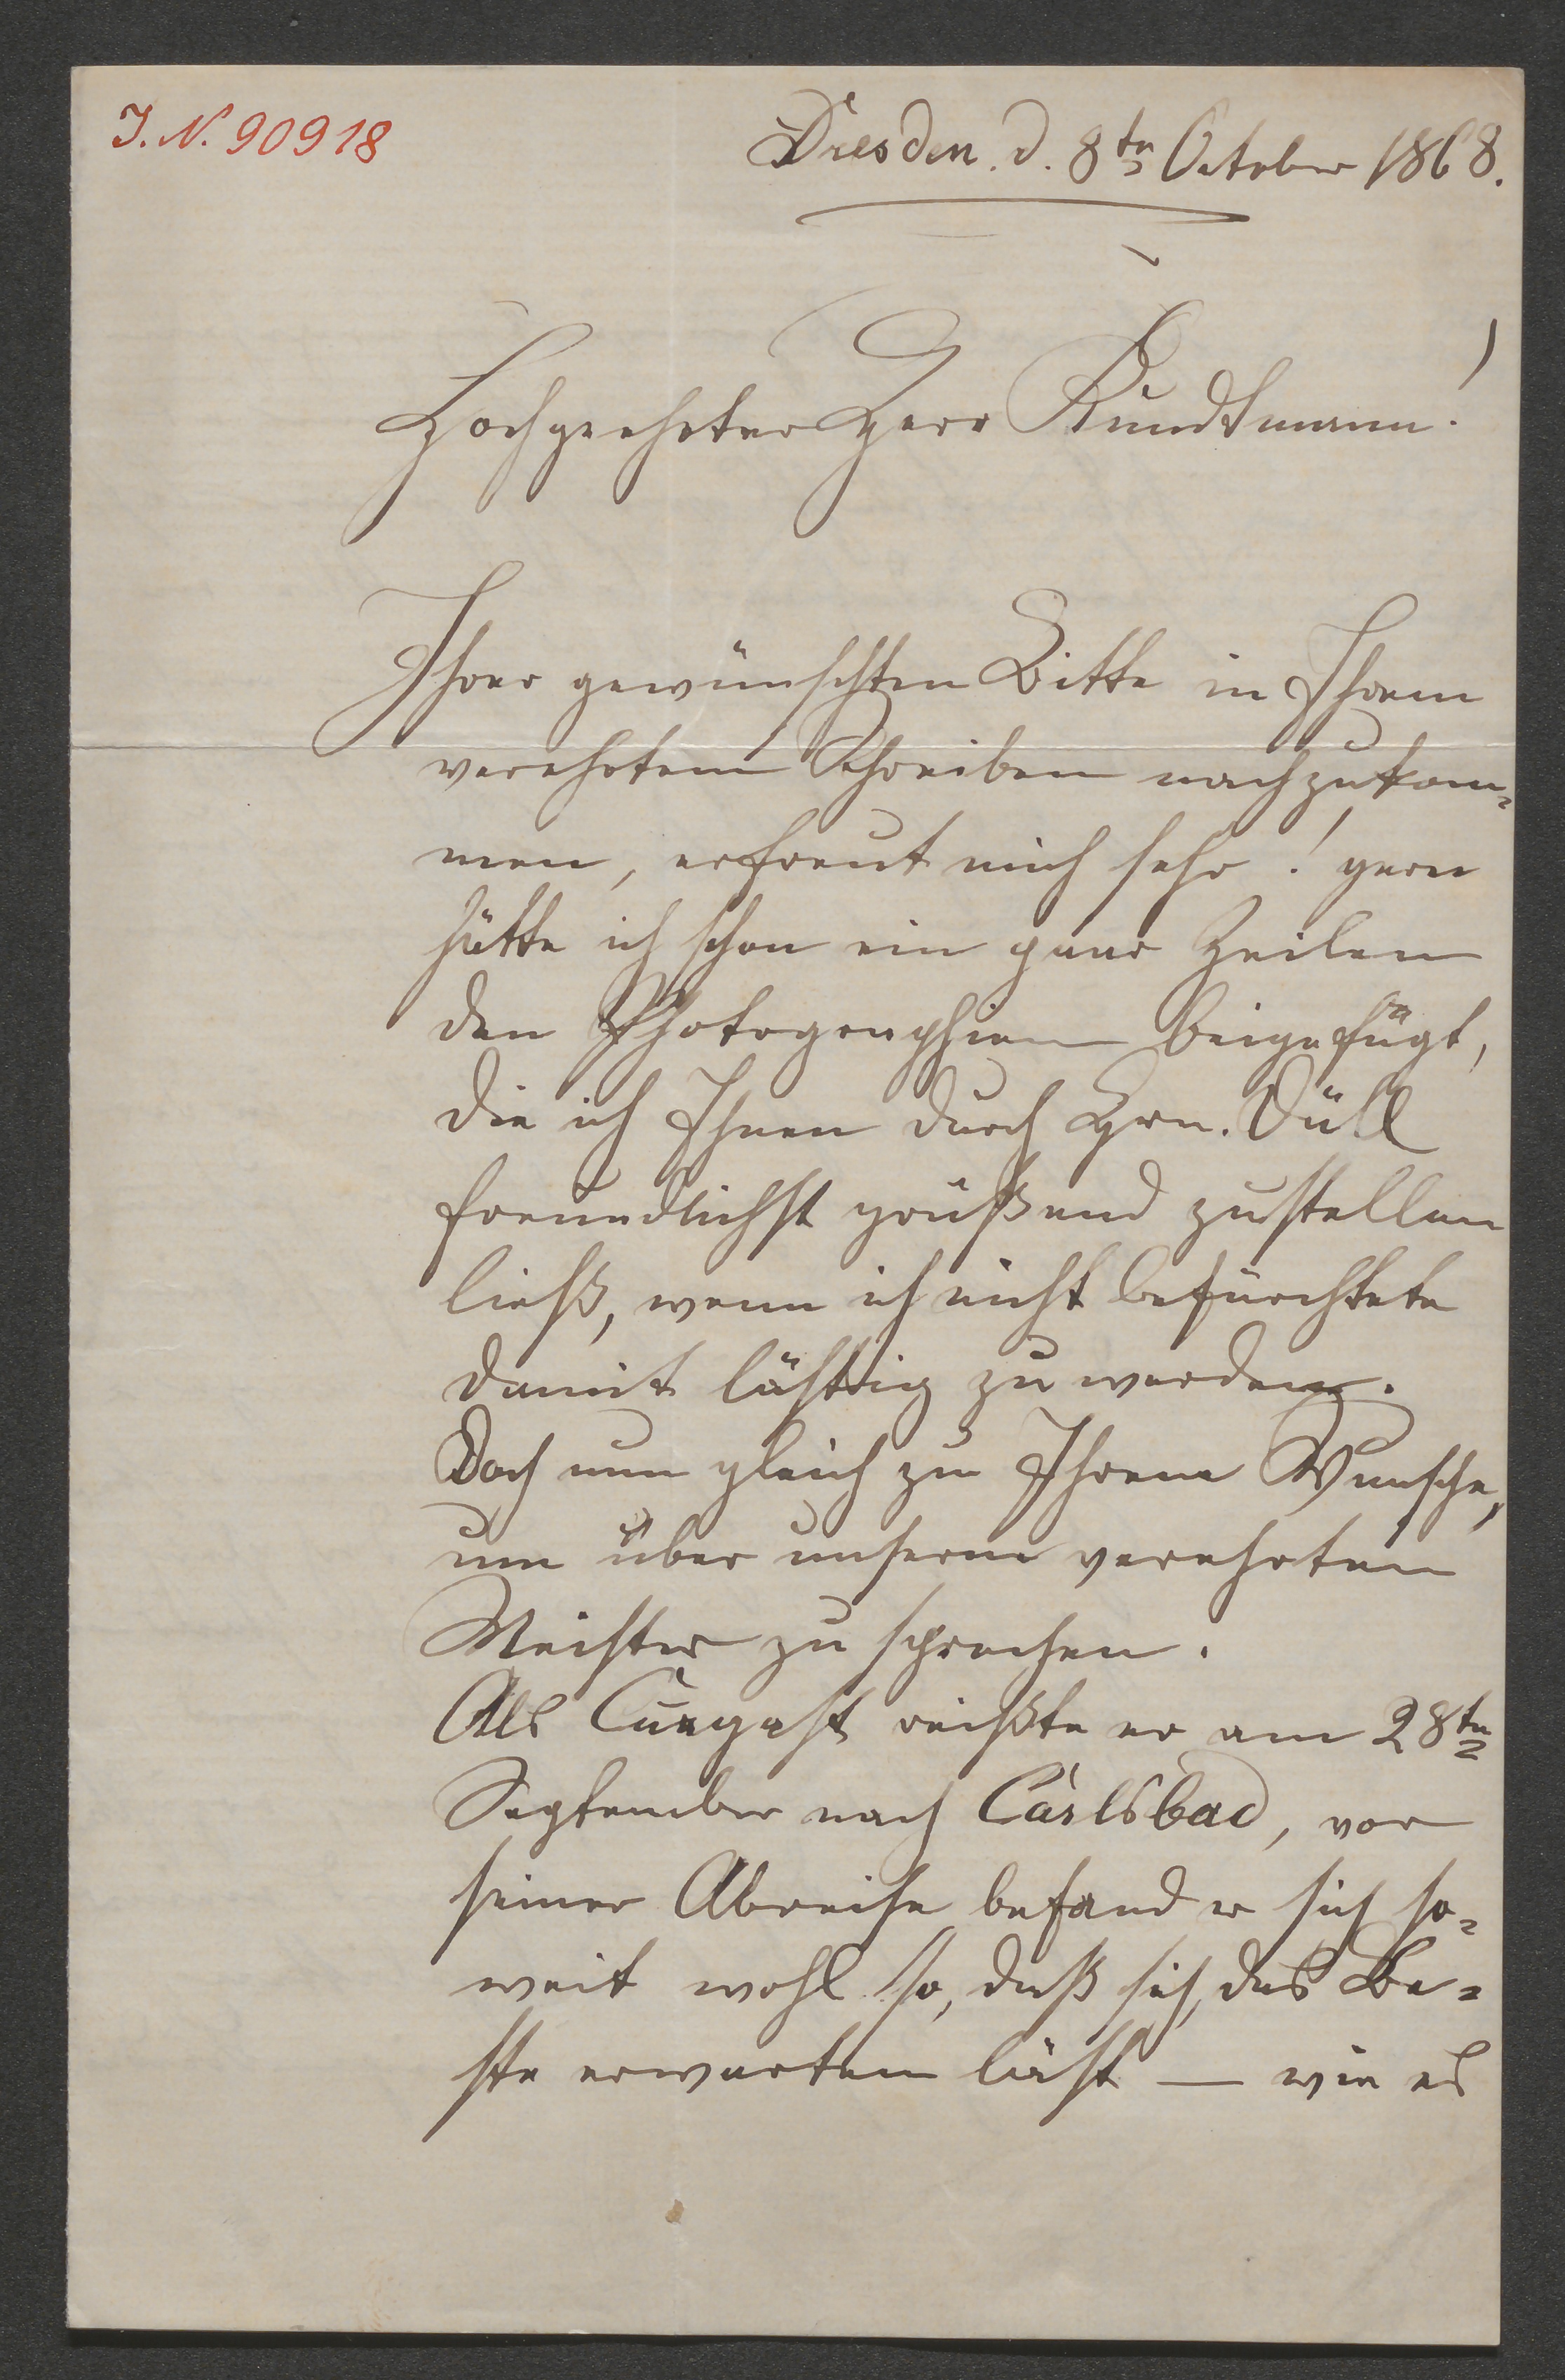 I. N. 90918
Dresden. d. 8ten October 1868.
Hochgeehrter Herr Kundtmann!
Ihrer gewünschten Bitte in Ihrem
verehrtem Schreiben nachzukom=
men, erfreut mich sehr! gern
hätte ich schon ein paar Zeilen
den Photographien beigefügt,
die ich Ihnen durch Hrn. Düll
freundlichst grüßend zustellen
ließ, wenn ich nicht befürchtete
damit lästig zu werden.
Doch nun gleich zu Ihrem Wunsche,
um über unserm verehrten
Meister zu sprechen.
Als Curgast reißte er am 28ten
September nach Carlsbad, vor
seiner Abreise befand er sich so=
weit wohl so, daß sich das Be=
ste erwarten läßt — wie es